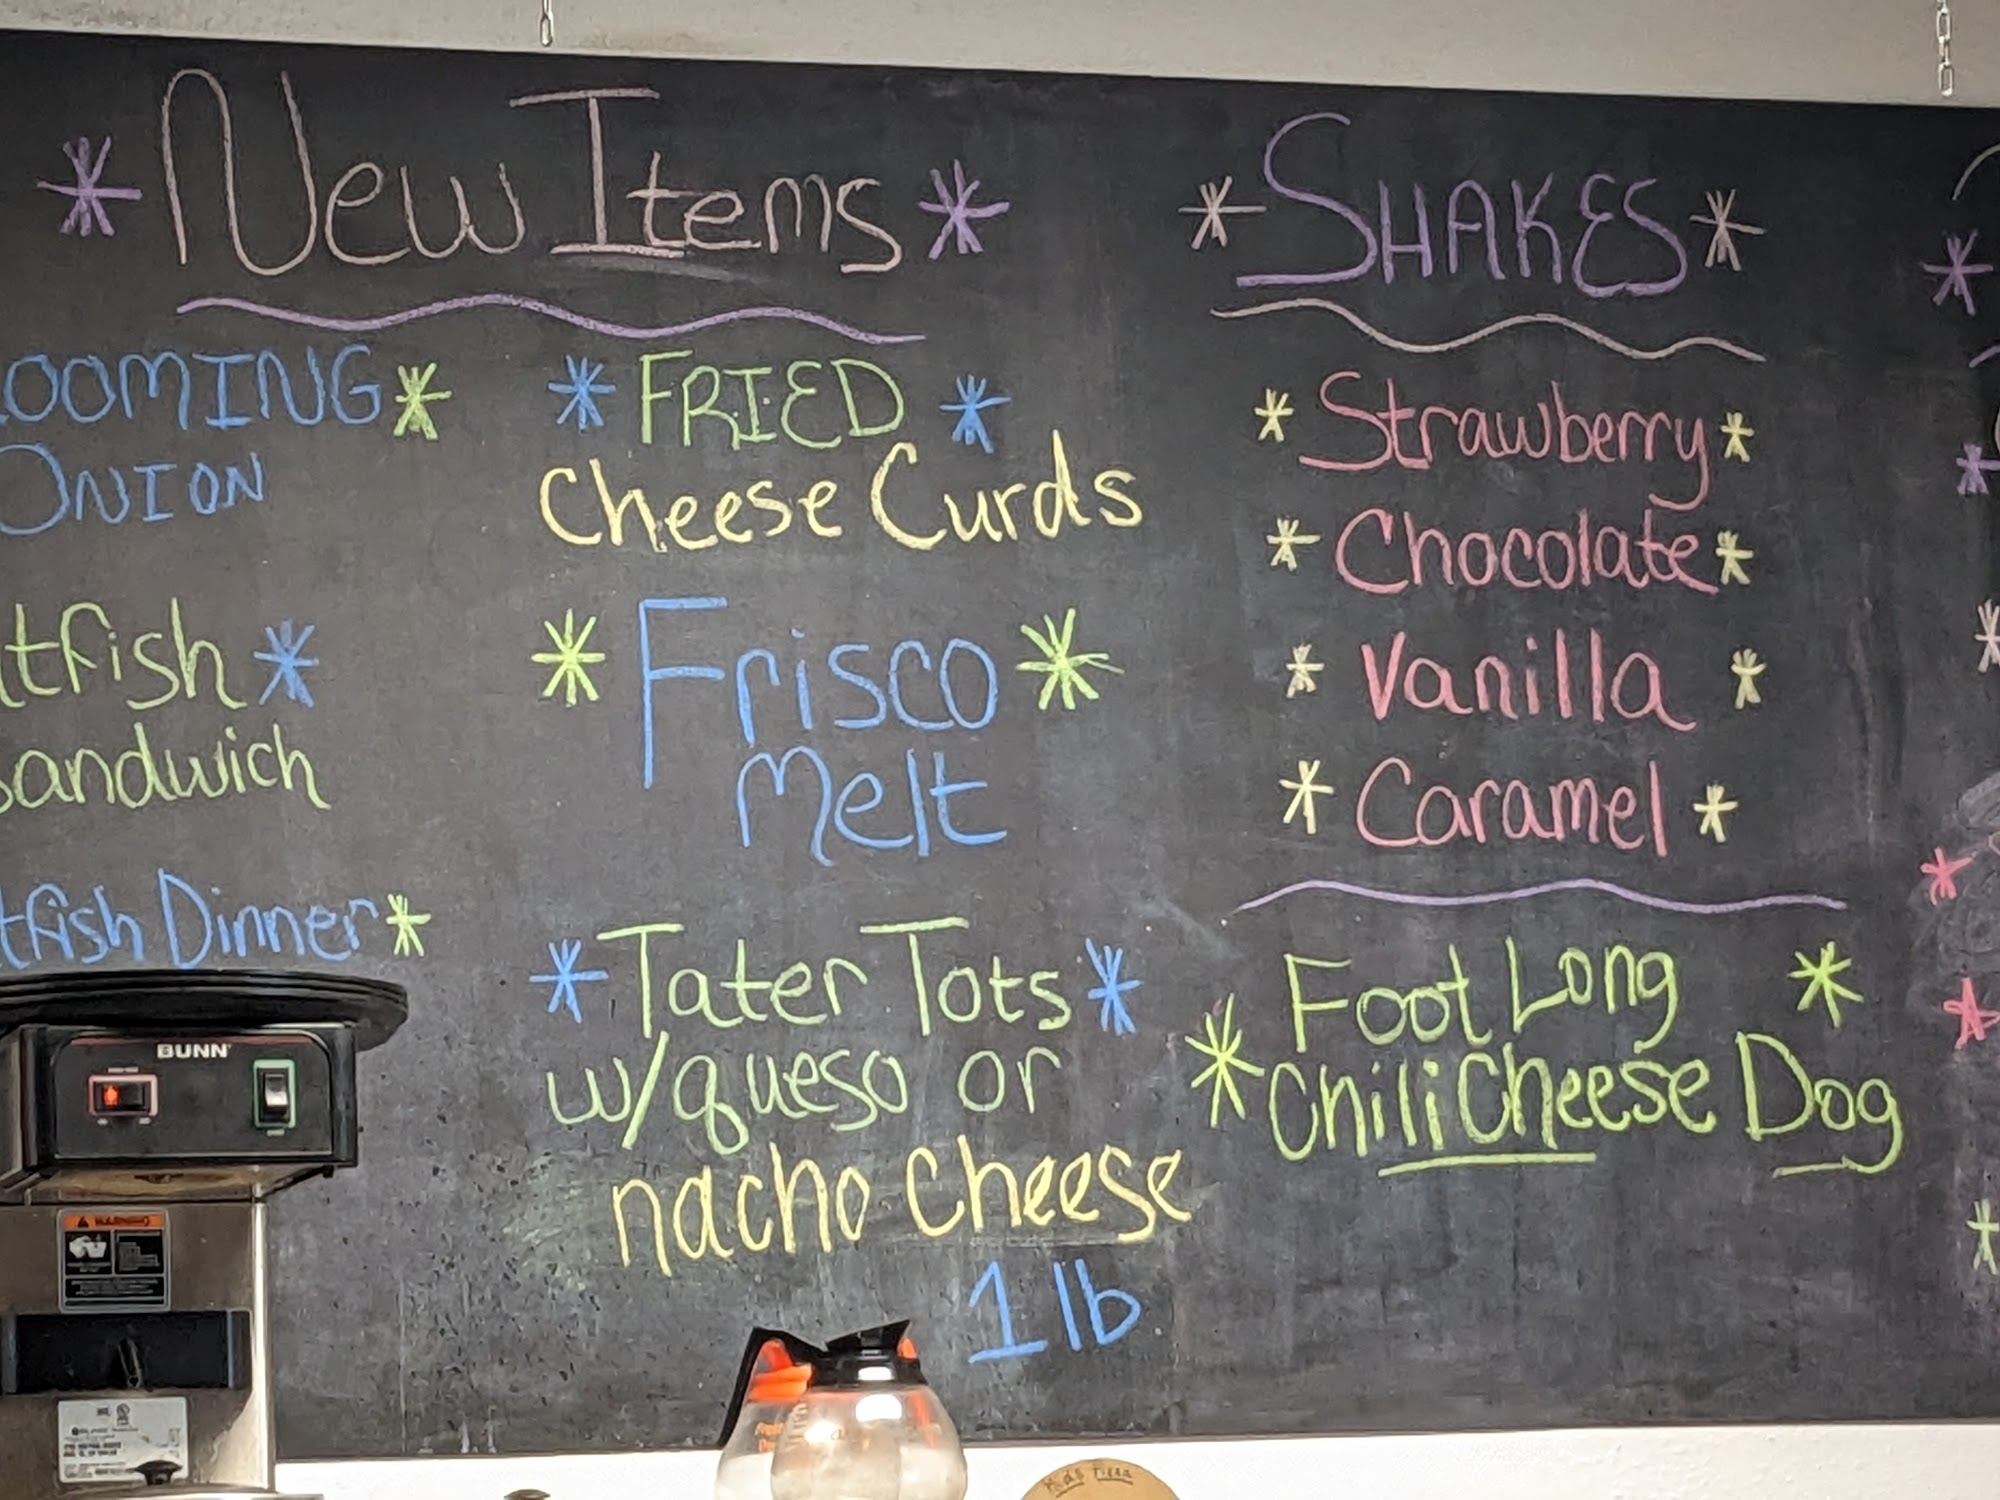 New Items
LOOMING
ONION
atfish
Sandwich
tfish Dinner
FRIED
Cheese Curds
Frisco
Melt
Tater Tots
w/queso or
nacho Cheese
1 lb
SHAKES
Strawberry
Chocolate
Vanilla
Caramel
Foot Long
Chili Cheese Dog
BUNN
WARNING
Kids Pizza